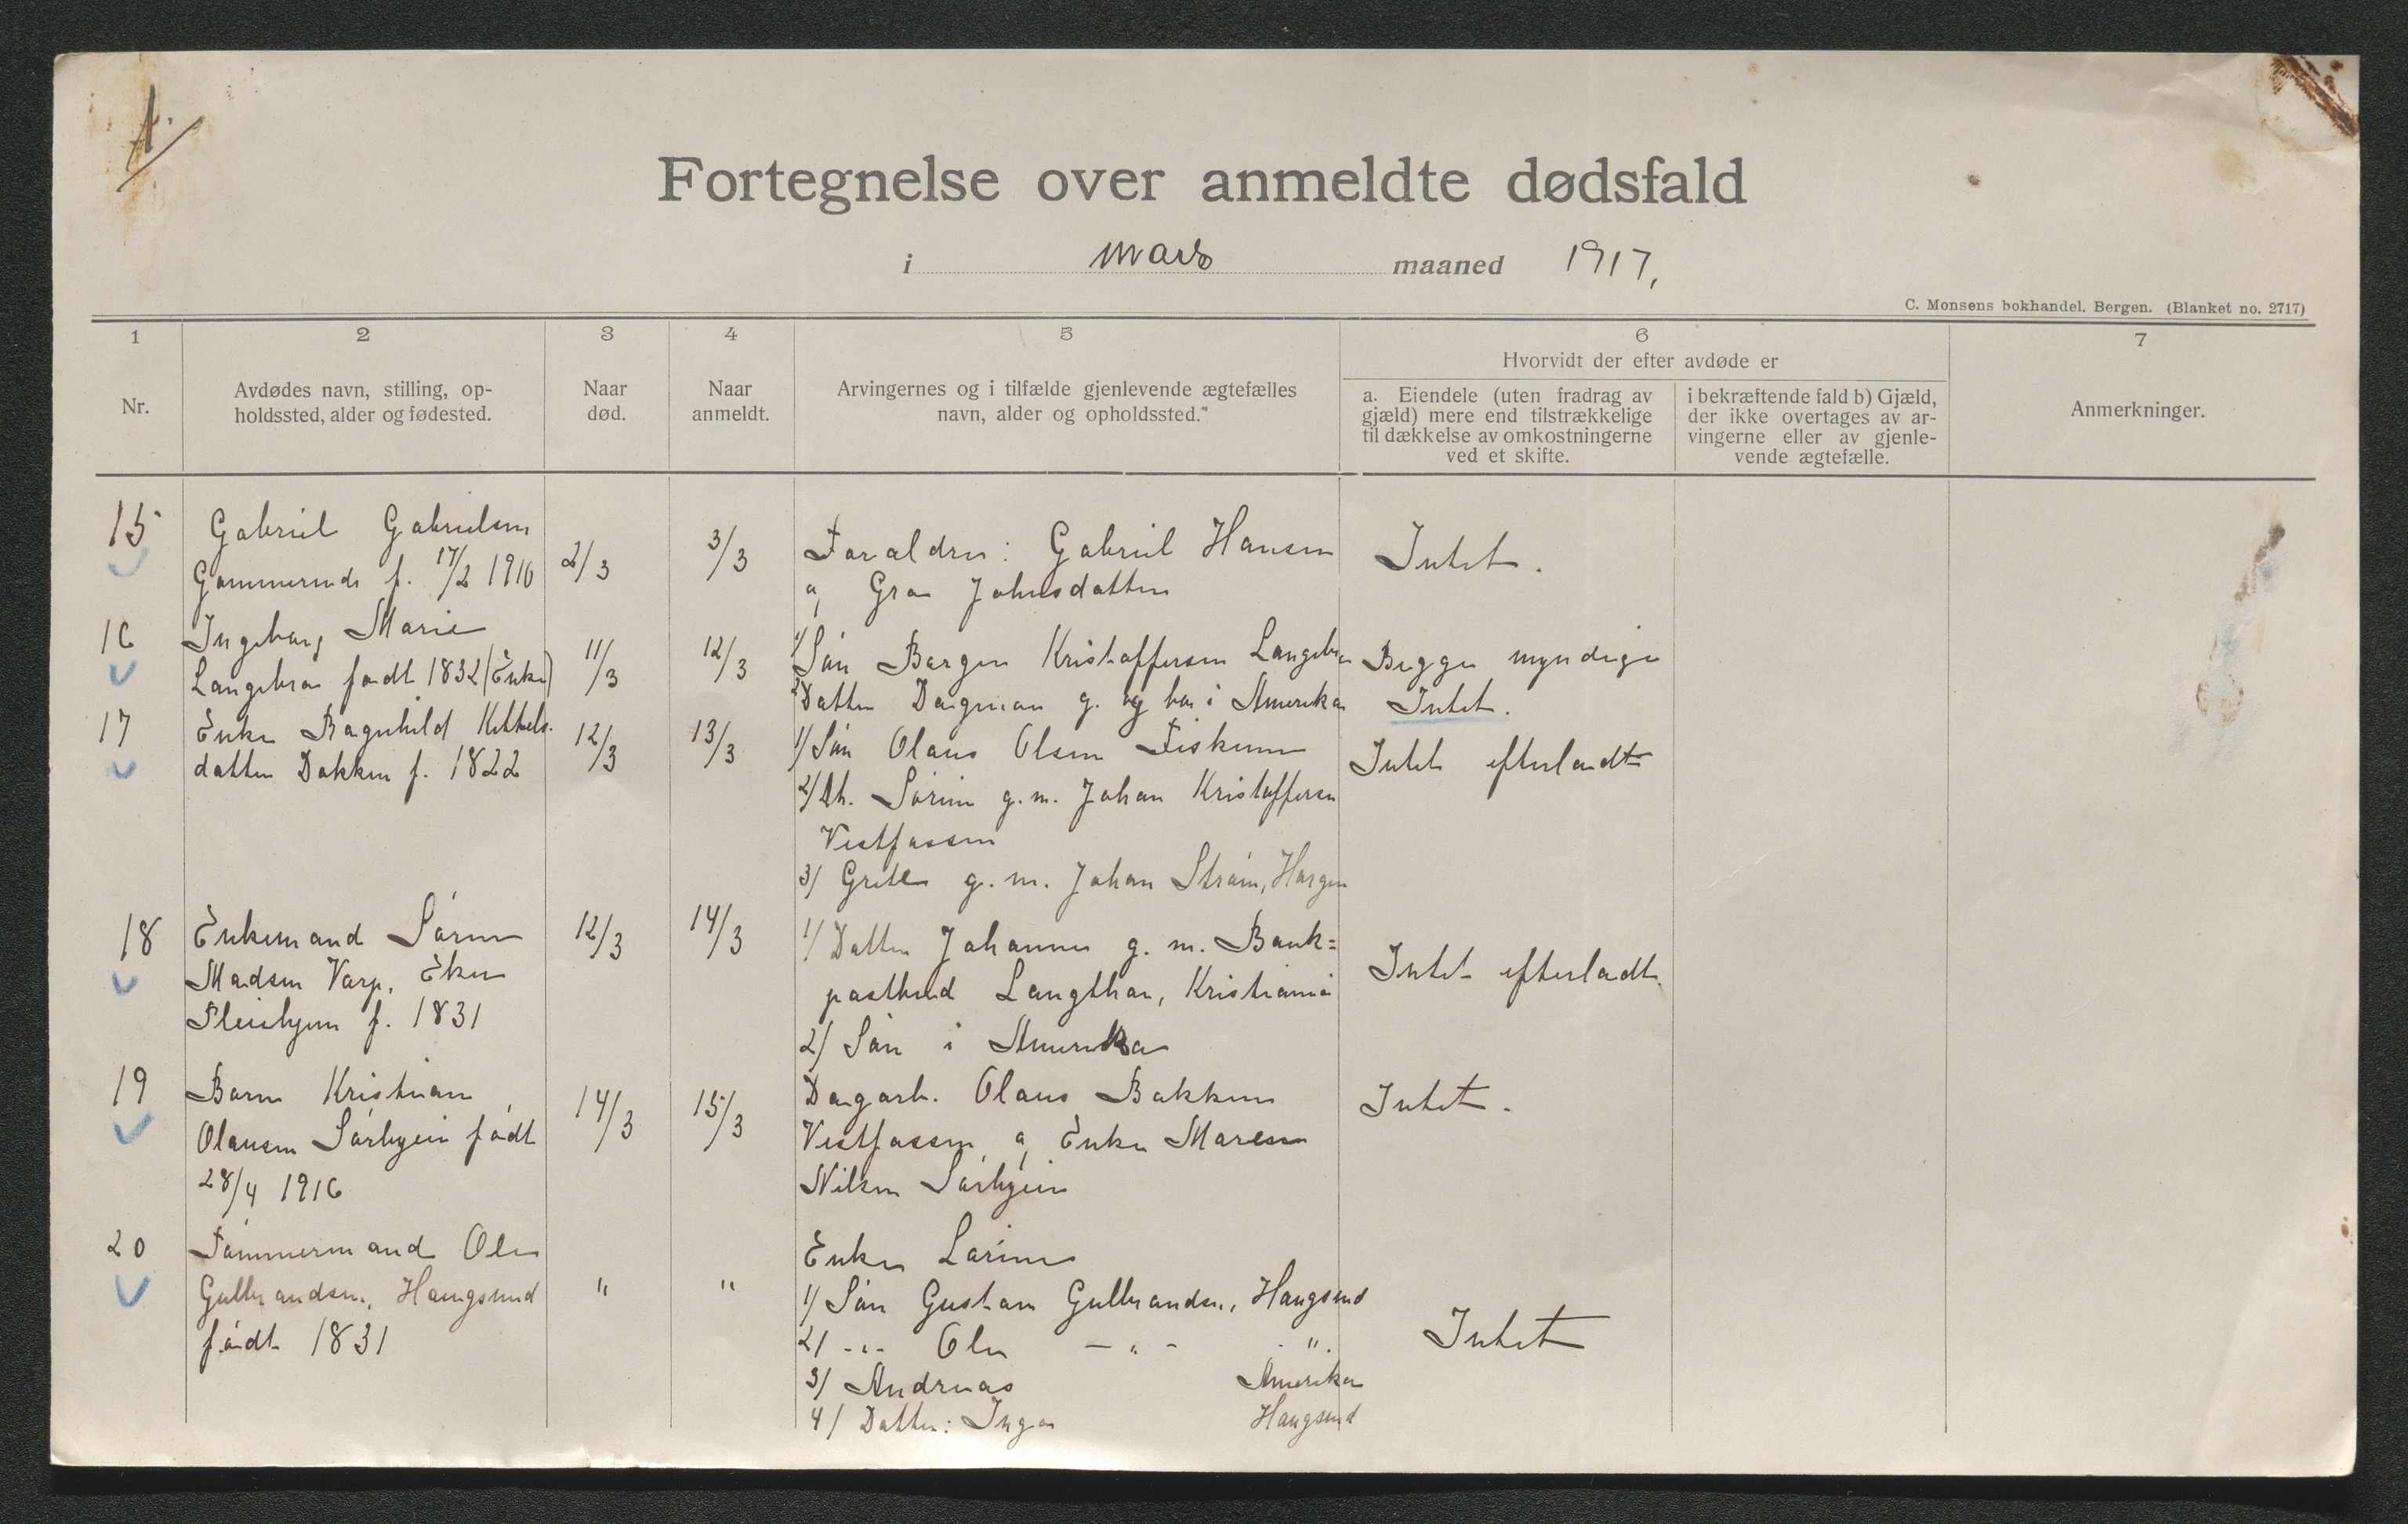 1.
Fortegnelse over anmeldte dødsfald
i mars maaned 1917,
C. Monsens bokhandel, Bergen. (Blanket no. 2717)
1 2 3 4 5 6 7
Nr.
Avdødes navn, stilling, op-
holdssted, alder og fødested.
Naar
død.
Naar
anmeldt.
Arvingernes og i tilfælde gjenlevende ægtefælles
navn, alder og opholdssted.
Hvorvidt der efter avdøde er
a. Eiendele (uten fradrag av
gjæld) mere end tilstrækkelige
til dækkelse av omkostningerne
ved et skifte.
i bekræftende fald b) Gjæld,
der ikke overtages av ar-
vingerne eller av gjenle-
vende ægtefælle.
Anmerkninger.
15
Gabriel Gabrielsen
f. 17/2 1910
2/3
3/3
Foraldre: Gabriel Hansen
og Gro Johnsdatter
Intet.
16
Ingeborg Marie
Langebro født 1832 (Enke)
11/3
12/3
1/ Søn Borgen Kristoffersen Langebro
2/ Datter Dagmar g. og bor i Amerika
Begge myndige
Intet.
17
Enke Ragnhild Kittels-
datter Dokken f. 1822
12/3
13/3
1/ Søn Olaus Olsen Fiskum
2/ Dt. Sørine g. m. Johan Kristoffersen
Vestfossen
3/ Grete g. m. Johan Strøm, Horgen
Intet efterladt
18
Enkemand Søren
Madsen Varp, Eker
f. 1831
12/3
14/3
1/ Datter Johanne g. m. Bank=
postbud Langthon, Kristiania
2/ Søn i Amerika
Intet efterladt.
19
Barn Kristian
Olausen Sørbyeie født
28/4 1916
14/3
15/3
Dagarb. Olaus Bakken
Vestfossen og Enke Maren
Nilsen Sørbyeie
Intet.
20
Tømmermand Ole
Gulbrandsen, Haugsund
født 1831
"
"
Enke Larine
1/ Søn Gustav Gulbrandsen, Haugsund
2/ -"- Ole -"- "
3/ Andreas Amerika
4/ Datter: Inga Haugsund
Intet